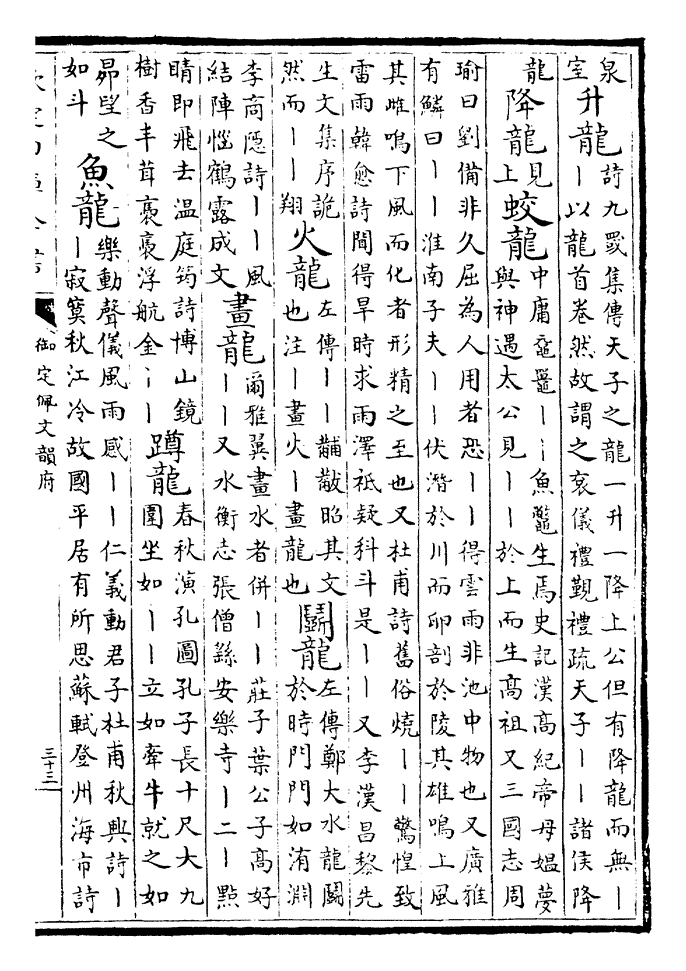 泉室升龍詩九罭集傳天子之龍一升一降上公但有降龍而無丨丨以龍首卷然故謂之衮儀禮覲禮疏天子丨丨諸侯降
龍降龍見上蛟龍中庸黿鼉丨丨魚鼈生焉史記漢高紀帝母媼夢與神遇太公見丨丨於上而生高祖又三國志周
瑜曰劉備非久屈為人用者恐丨丨得雲雨非池中物也又廣雅有鱗曰丨丨淮南子夫丨丨伏潛於川而卵剖於陵其雄鳴上風
其雌鳴下風而化者形精之至也又杜甫詩舊俗燒丨丨驚惶致雷雨韓愈詩間得旱時求雨澤祗疑科斗是丨丨又李漢昌黎先
生文集序詭然而丨丨翔火龍左傳丨丨黼黻昭其文也注丨畫火丨畫龍也鬭龍左傳鄭大水龍鬭於時門門如洧淵
李商隱詩丨丨風結陣惱鶴露成文畫龍爾雅翼畫水者併丨丨莊子葉公子高好丨丨又水衡志張僧繇安樂寺丨二丨點
睛即飛去温庭筠詩博山鏡樹香丰茸裊裊浮航金丨丨蹲龍春秋演孔圖孔子長十尺大九圍坐如丨丨立如牽牛就之如
昴望之如斗魚龍樂動聲儀風雨感丨丨仁義動君子杜甫秋興詩丨丨寂寞秋江冷故國平居有所思蘇軾登州海市詩
御定佩文韻府
三十三